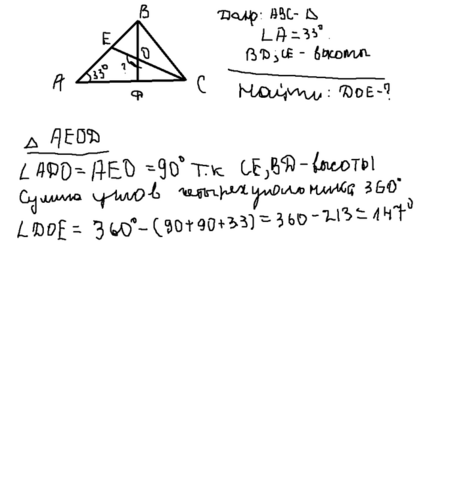 B
Дано: ABC - Δ
E
∠A = 33°
O
BD, CE - высоты
?
A 33° C
D
Найти: DOE - ?
Δ AEOD
∠ADO = AEO = 90° т.к CE, BD - высоты
Сумма углов четырехугольника 360°
∠DOE = 360° - (90+90+33) = 360 - 213 = 147°